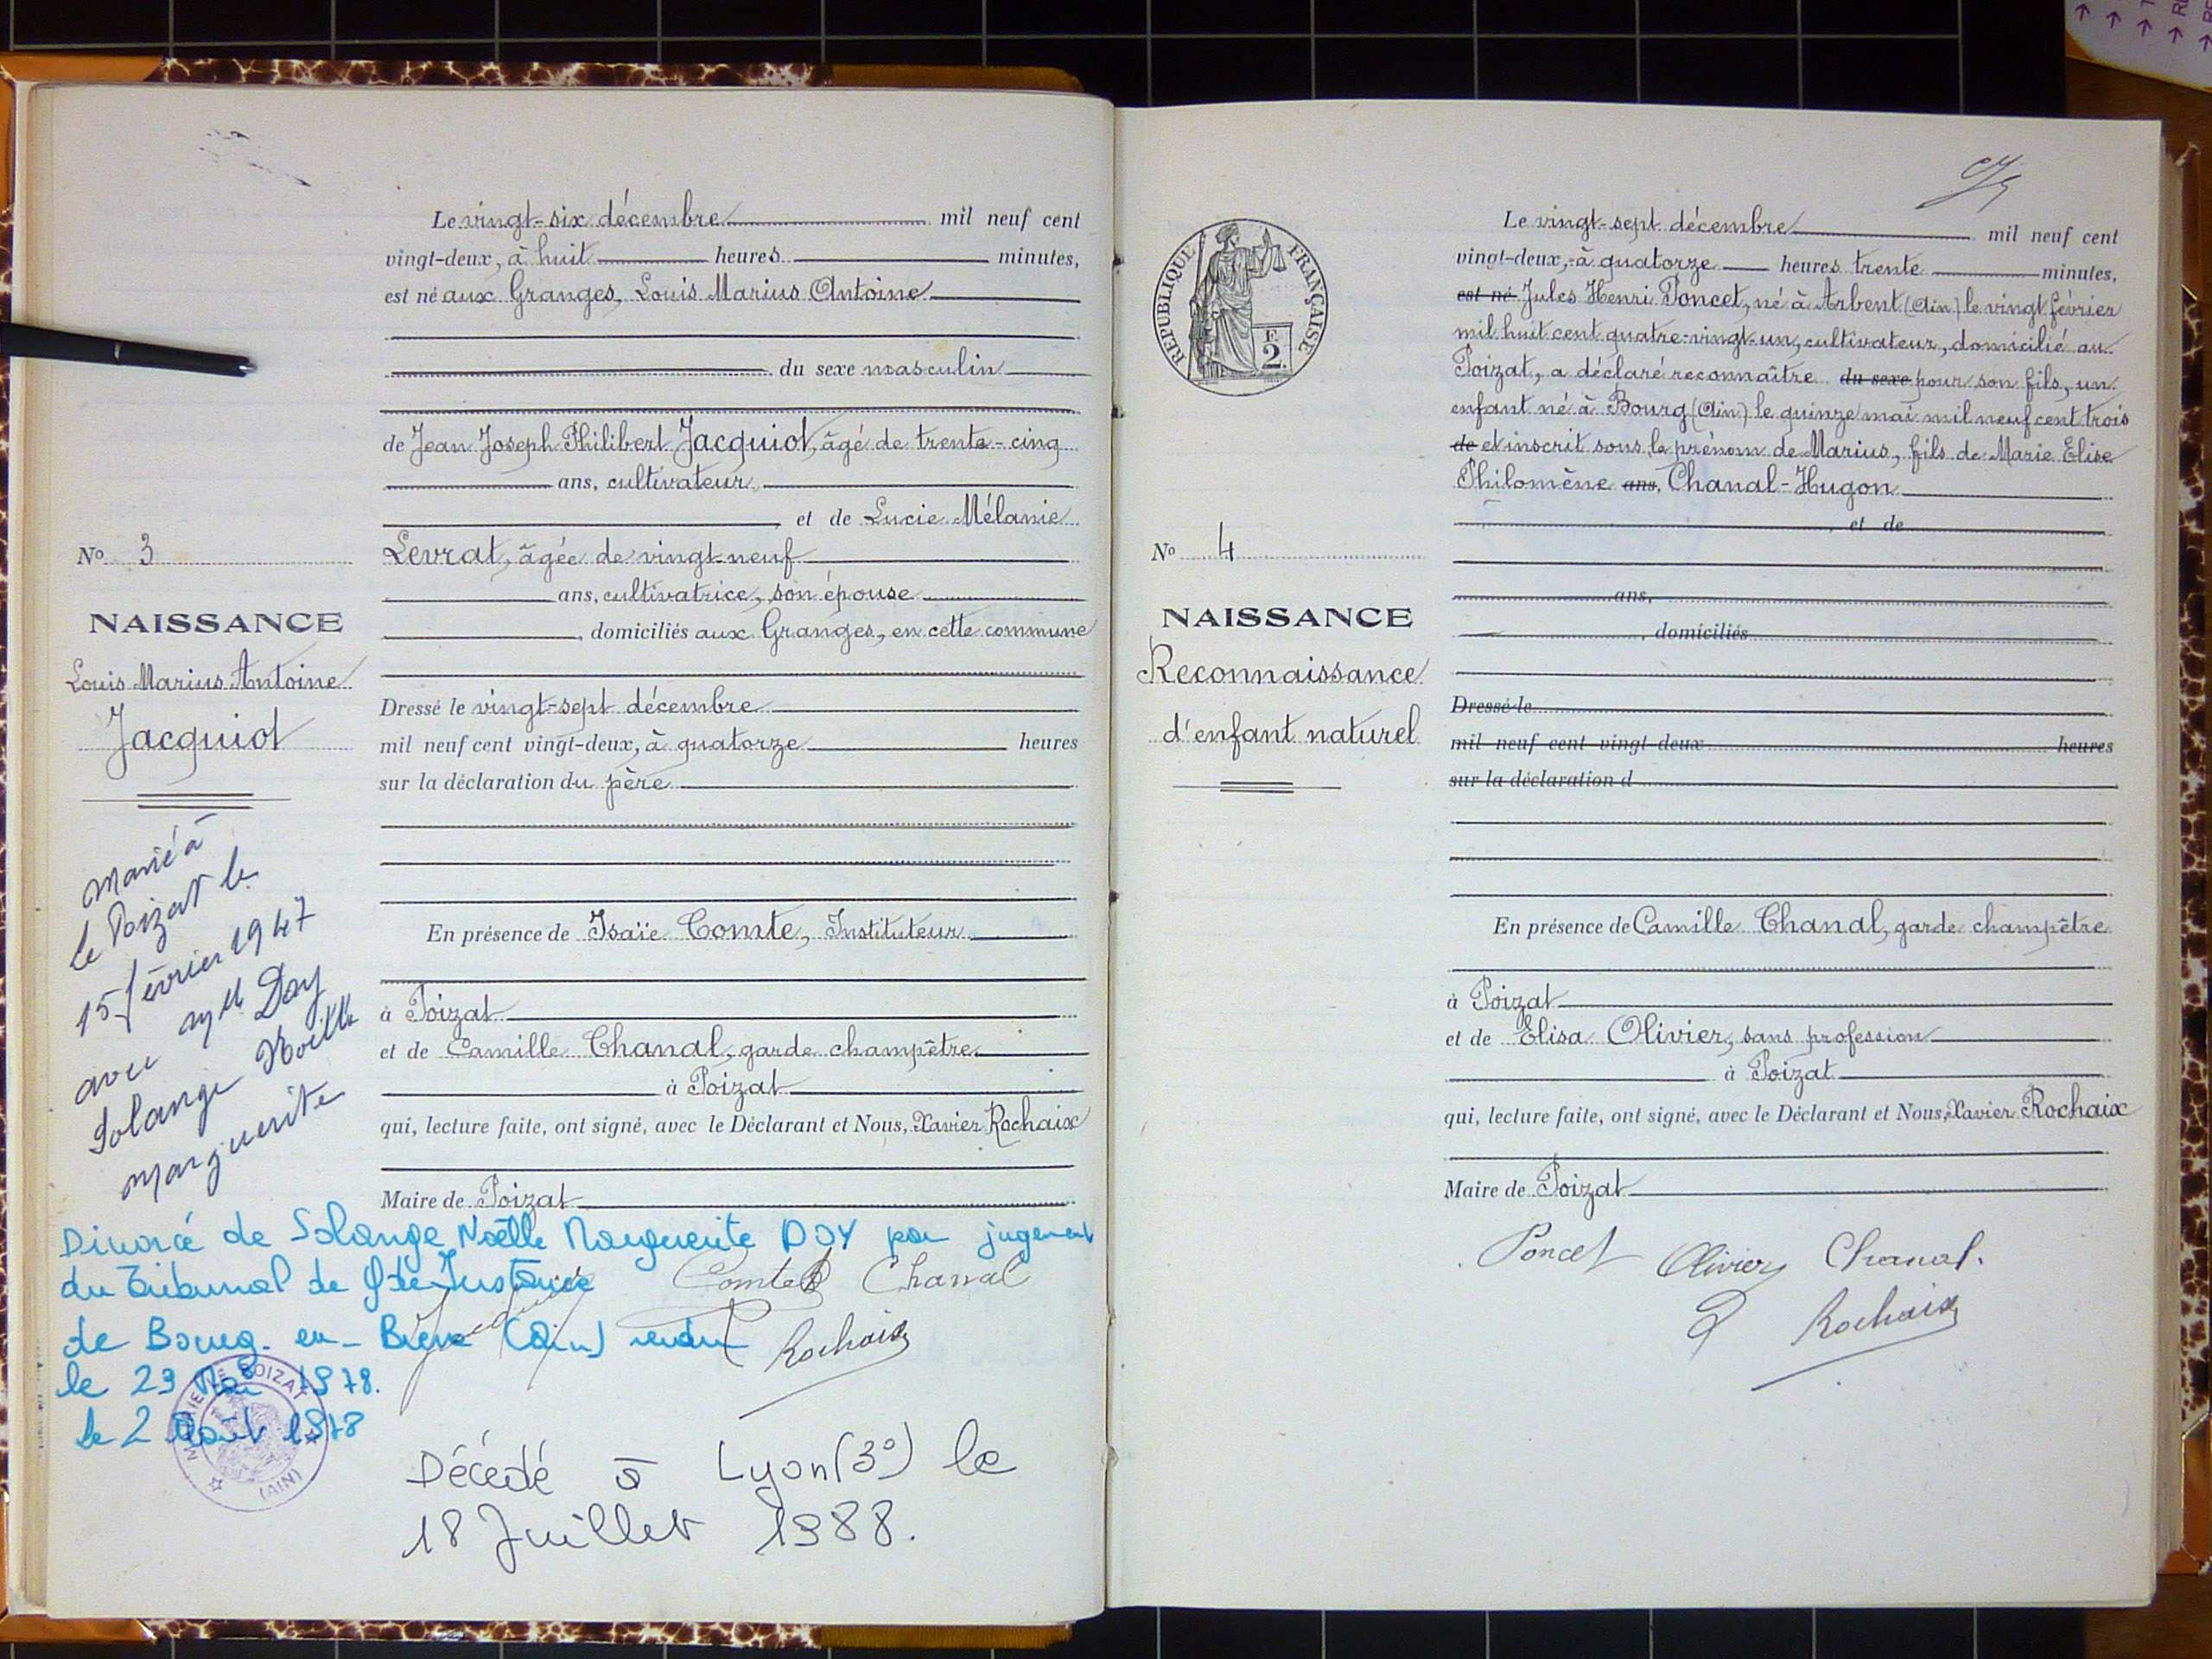 Le vingt-six décembre mil neuf cent
vingt-deux, à huit heures minutes,
est né aux Granges, Louis Marius Antoine
du sexe masculin
de Jean Joseph Philibert Jacquiot, âgé de trente-cinq
ans, cultivateur,
et de Lucie Mélanie
Levrat, âgée de vingt-neuf
ans, cultivatrice, son épouse
, domiciliés aux Granges, en cette commune
Dressé le vingt-sept décembre
mil neuf cent vingt-deux, à quatorze heures
sur la déclaration du père
En présence de Isaïe Comte, Instituteur
à Poizat
et de Camille Chanal, garde champêtre
à Poizat
qui, lecture faite, ont signé, avec le Déclarant et Nous, Xavier Rochaix
Maire de Poizat
Comte Chanal
Rochaix
No 3
NAISSANCE
Louis Marius Antoine
Jacquiot
Marié à
le Poizat le
15 février 1947
avec Mlle Doy
Solange Noëlle
Marguerite
Divorcé de Solange Noëlle Marguerite DOY par jugement
du Tribunal de Gde Instance
de Bourg-en-Bresse (Ain) rendu
le 23 Mai 1978.
le 2 Août 1978
MAIRIE LE POIZAT
(AIN)
Décédé à Lyon (3e) le
18 Juillet 1988.
Le vingt-sept décembre mil neuf cent
vingt-deux, à quatorze heures trente minutes,
est né Jules Henri Poncet, né à Arbent (Ain) le vingt février
mil huit cent quatre-vingt-un, cultivateur, domicilié au
Poizat, a déclaré reconnaître du sexe pour son fils, un
enfant né à Bourg (Ain) le quinze mai mil neuf cent trois
de et inscrit sous le prénom de Marius, fils de Marie Elise
Philomène ans, Chanal-Hugon
et de
ans,
, domiciliés
Dressé le
mil neuf cent vingt-deux heures
sur la déclaration d
En présence de Camille Chanal, garde champêtre
à Poizat
et de Elisa Olivier, sans profession
à Poizat
qui, lecture faite, ont signé, avec le Déclarant et Nous, Xavier Rochaix
Maire de Poizat
Poncet Olivier Chanal.
Rochaix
RÉPUBLIQUE FRANÇAISE
E.
2.
No 4
NAISSANCE
Reconnaissance
d'enfant naturel